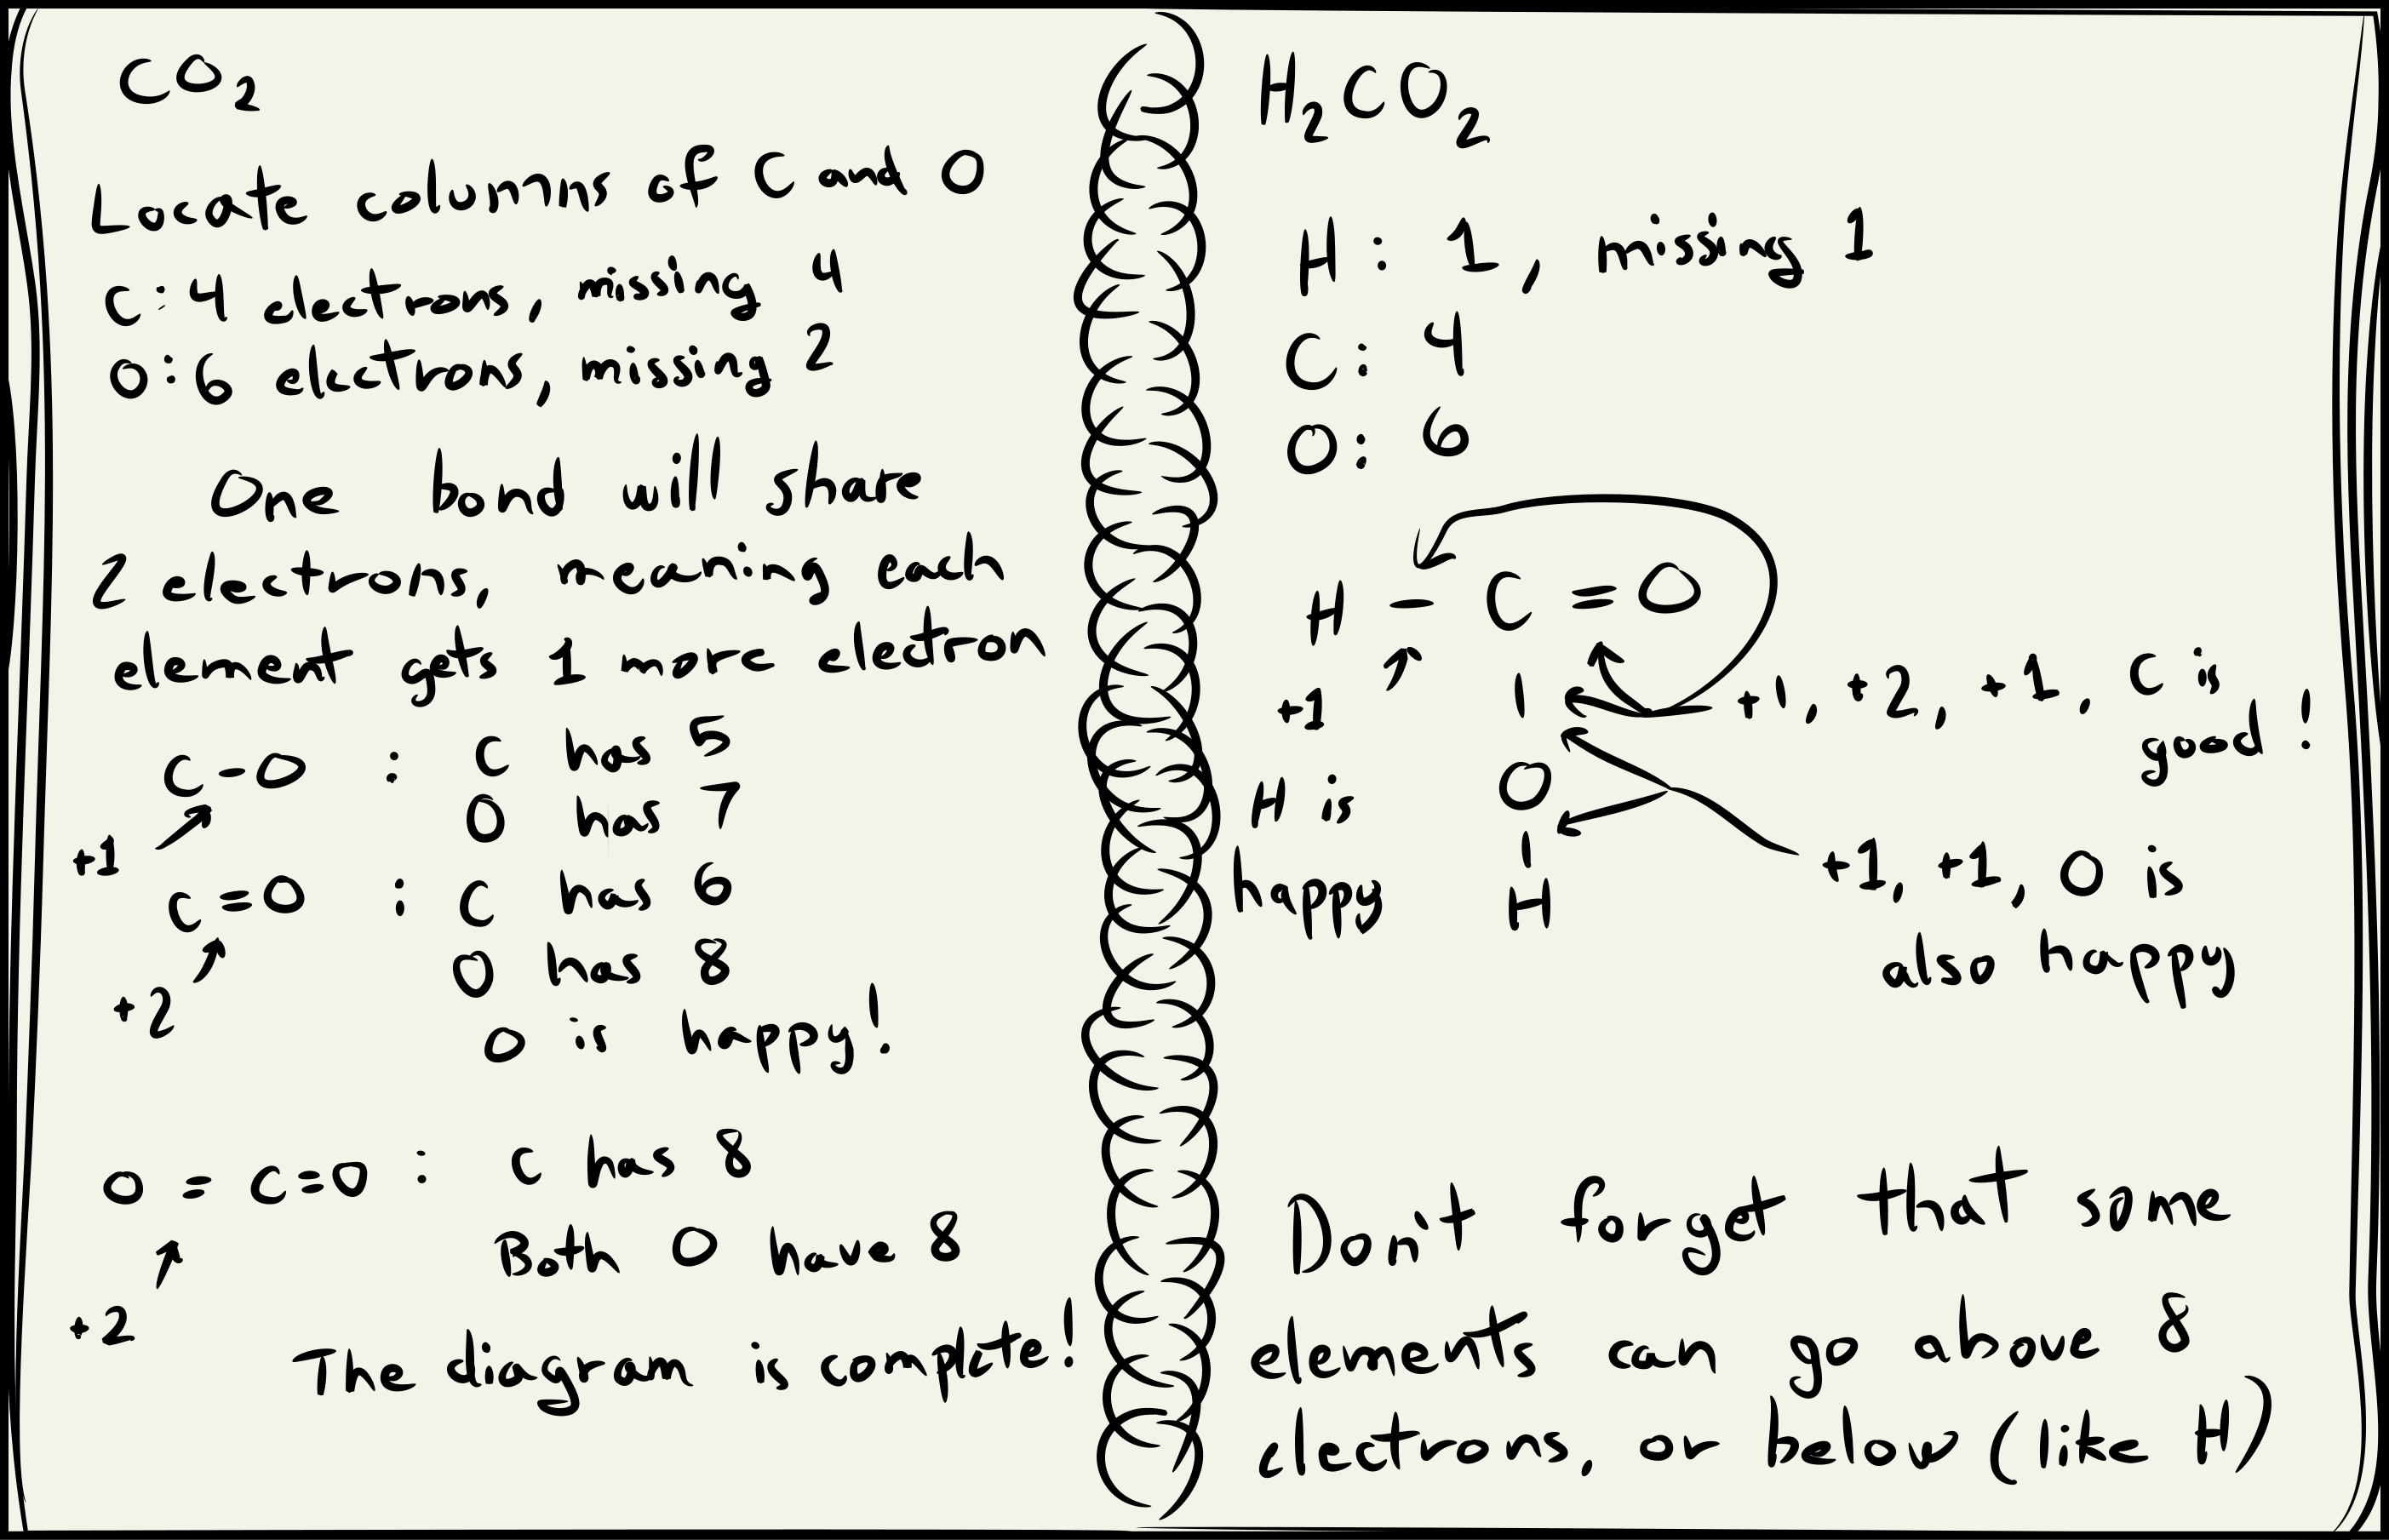 CO₂
Locate columns of C and O
C: 4 electrons, missing 4
O: 6 electrons, missing 2
One bond will share
2 electrons, meaning each
element gets 1 more electron
C-O : C has 5
O has 7
+1
C=O : C has 6
O has 8
+2
O is happy!
O=C=O : C has 8
Both O have 8
+2
The diagram is complete!
H₂CO₂
H: 1, missing 1
C: 4
O: 6
H - C = O
+1
| +1, +2, +1, C is
good!
H is
happy
O
| +1, +1, O is
H
also happy
Don't forget that some
elements can go above 8
electrons, or below (like H)